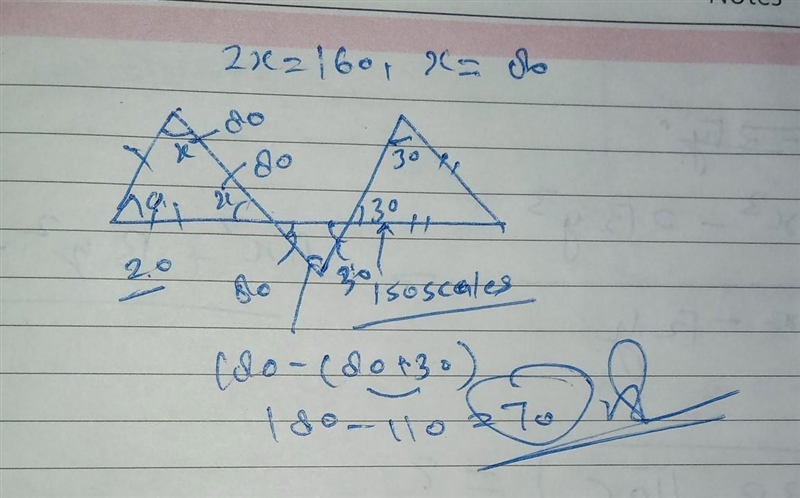 Notes
2x = 160, x = 80
80
x
80
30
x
30
20
80
30
isoscales
180 - (80 + 30)
180 - 110 = 70